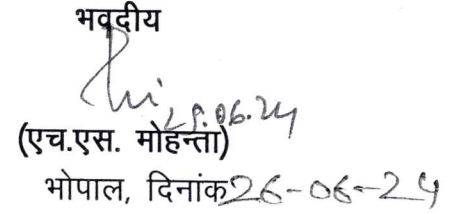 भवदीय
25.06.24
(एच.एस. मोहन्ता)
भोपाल, दिनांक 26-06-24